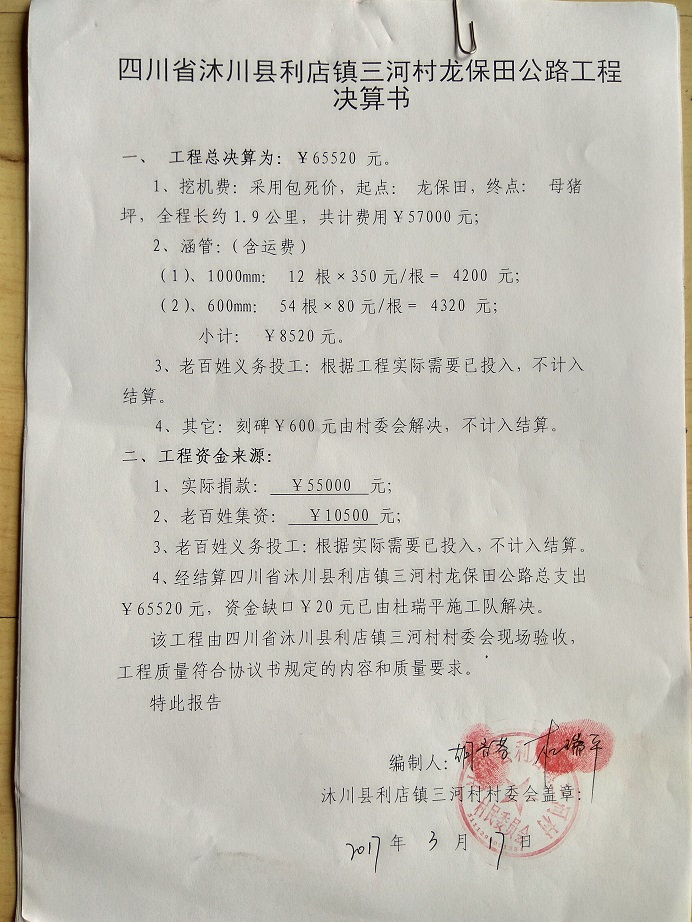 四川省沐川县利店镇三河村龙保田公路工程
决算书
一、 工程总决算为：￥65520 元。
1、挖机费：采用包死价，起点： 龙保田，终点： 母猪
坪，全程长约1.9公里，共计费用￥57000元；
2、涵管：(含运费)
(1)、1000mm： 12 根×350元/根= 4200 元；
(2)、600mm： 54根×80元/根= 4320 元；
小计： ￥8520元。
3、老百姓义务投工：根据工程实际需要已投入，不计入
结算。
4、其它：刻碑￥600元由村委会解决，不计入结算。
二、工程资金来源：
1、实际捐款： ￥55000 元；
2、老百姓集资： ￥10500 元；
3、老百姓义务投工：根据实际需要已投入，不计入结算。
4、经结算四川省沐川县利店镇三河村龙保田公路总支出
￥65520元，资金缺口￥20元已由杜瑞平施工队解决。
该工程由四川省沐川县利店镇三河村村委会现场验收，
工程质量符合协议书规定的内容和质量要求。
特此报告
编制人： 杜瑞平
沐川县利店镇三河村村委会盖章：
村民委员会
2017 年 3 月 17 日